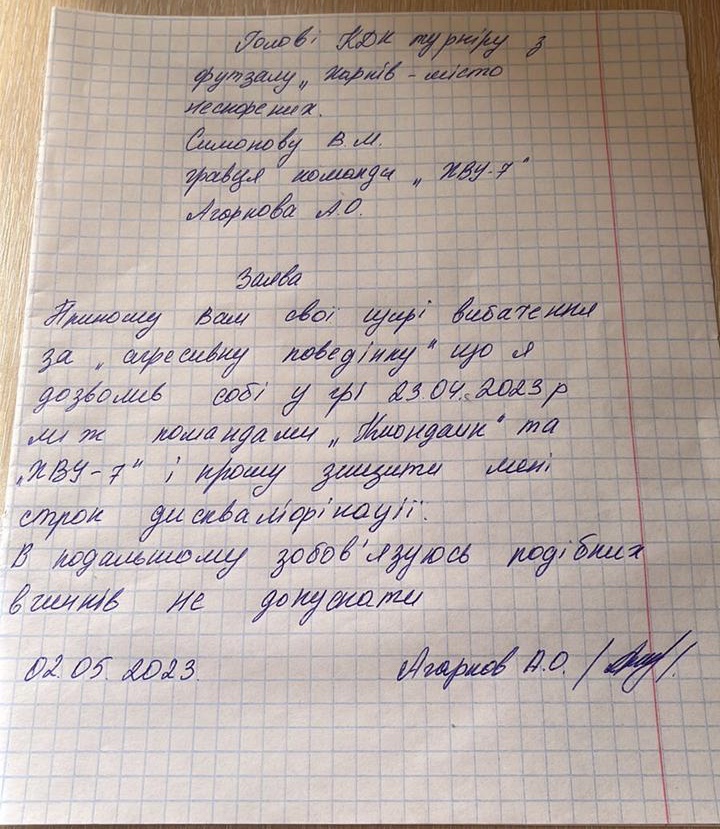 Голові КДК турніру з
футзалу „Харків – місто
нескорених.
Симонову В.М.
гравця команди „ХВУ-7"
Агаркова А.О.
Заява
Приношу Вам свої щирі вибачення
за „агресивну поведінку" що я
дозволив собі у грі 23.04.2023р
між командами „Клондайк" та
„ХВУ-7" і прошу знизити мені
строк дискваліфікації.
В подальшому зобов'язуюсь подібних
вчинків не допускати
02.05.2023. Агарков А.О. /